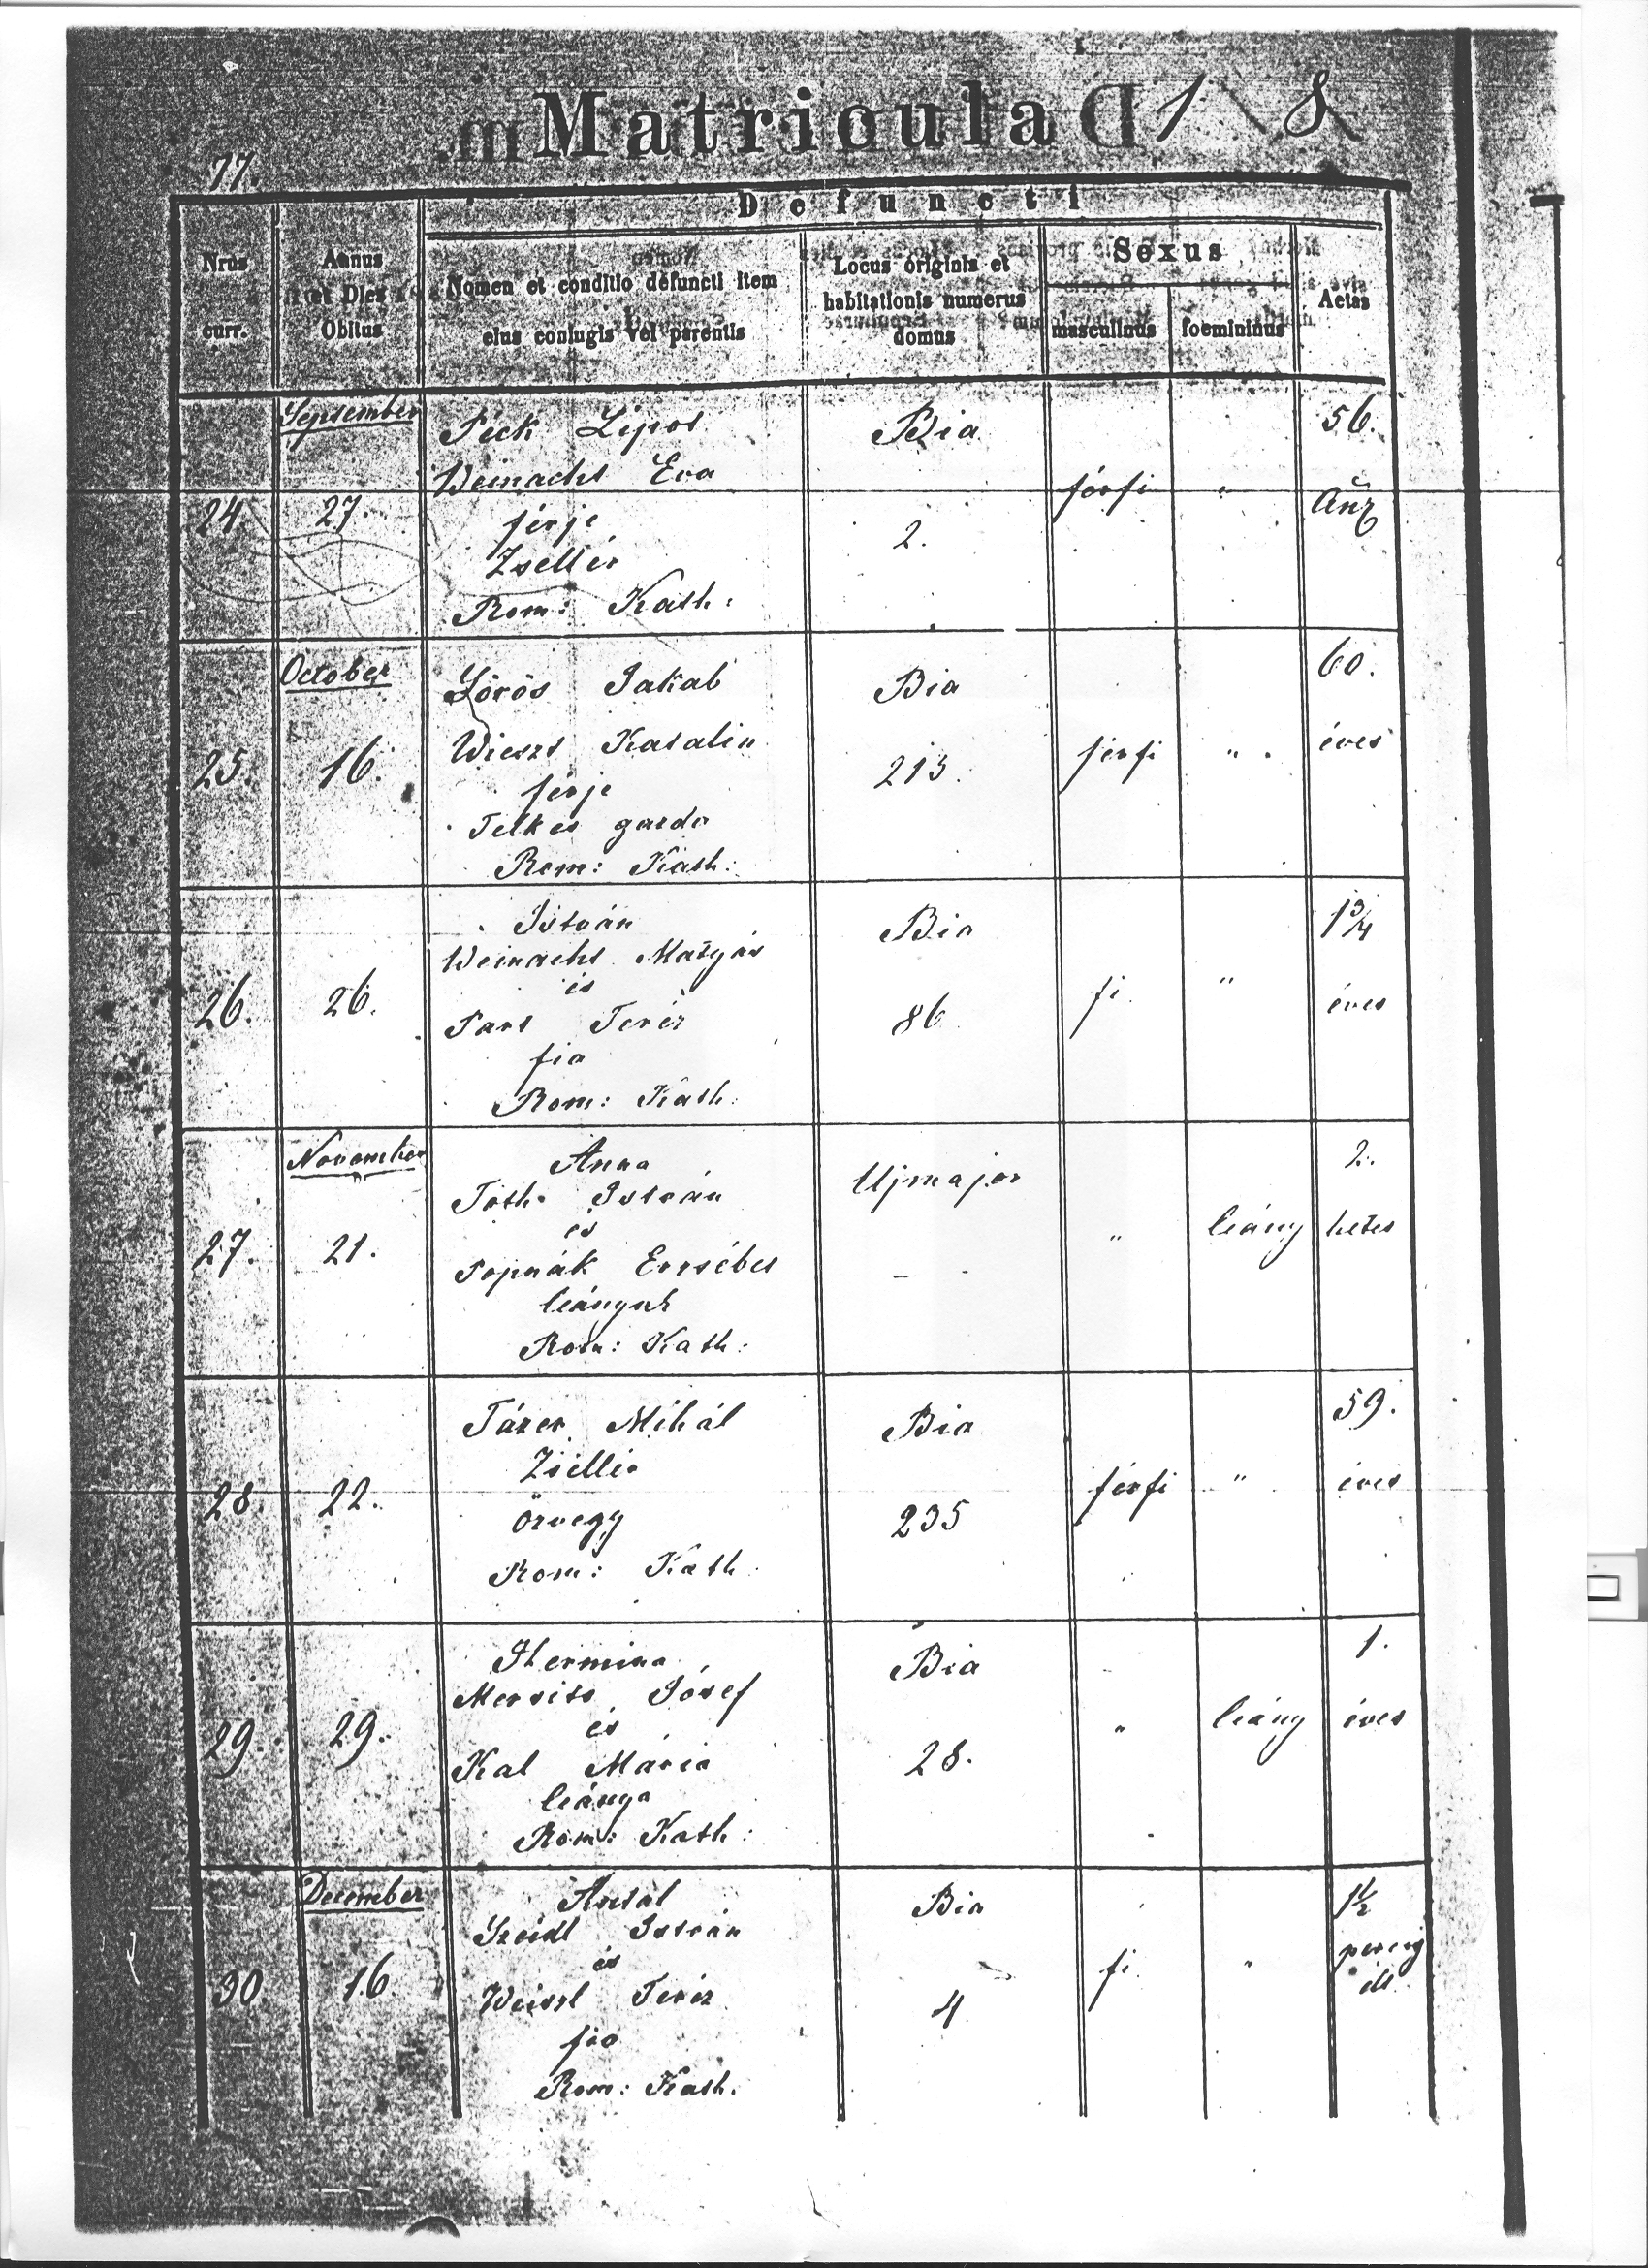 Matricula 18
77.
Defuncti
Nrus curr.
Annus et Dies Obitus
Nomen et conditio defuncti item eius coniugis vel parentis
Locus originis et habitationis numerus domus
Sexus
masculinus
foemininus
Aetas
September
24.
27.
Peck Lipot
Weinacht Eva
férje
Zsellér
Rom: Kath:
Bia
2.
férfi
"
56.
October
25.
16.
Jakab
Katalin
férje
Telkes gazda
Rom: Kath:
Bia
213.
férfi
"
60.
éves
26.
26.
István
Weinacht Mátyás
és
Teréz
fia
Rom: Kath:
Bia
86
fi
"
1 3/4
éves
November
27.
21.
Anna
Toth István
és
Erzsébet
leányuk
Rom: Kath:
Ujmajor
"
leány
2.
hetes
28.
22.
Mihál
Zsellér
özvegy
Rom: Kath
Bia
235
férfi
"
59.
éves
29.
29.
Hermina
Jósef
és
Mária
leánya
Rom: Kath:
Bia
28.
"
leány
1.
éves
December
30
16.
Antal
István
és
Teréz
fia
Rom: Kath.
Bia
4
fi
"
1 1/2
percig
élt